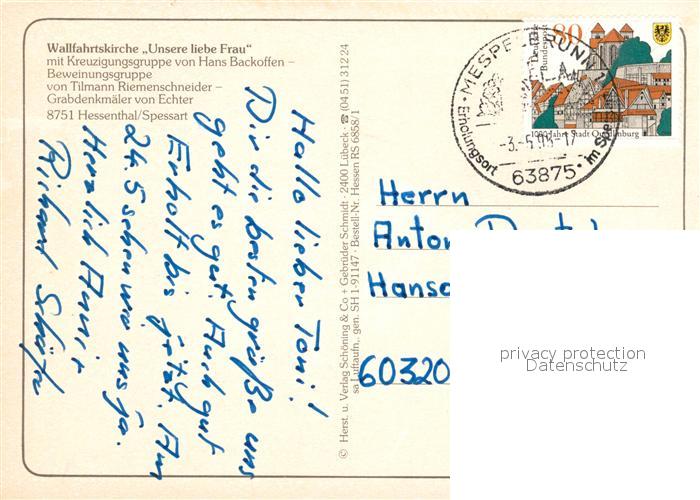 Wallfahrtskirche „Unsere liebe Frau"
mit Kreuzigungsgruppe von Hans Backoffen –
Beweinungsgruppe
von Tilmann Riemenschneider –
Grabdenkmäler von Echter
8751 Hessenthal/Spessart
Hallo lieber Toni!
Dir die besten grüße uns
geht es gut. Auch gut
Erholt bis jetzt. Am
24.5 sehen wir uns ja.
Herzlich
Richard Schäfer
© Herst. u. Verlag Schöning & Co + Gebrüder Schmidt · 2400 Lübeck · ☎ (04 51) 3 12 24
sa Luftaufn., gen. SH 1-91147 · Bestell-Nr. Hessen RS 6858/1
80
Deutsche
Bundespost
1000 Jahre Stadt Quedlinburg
MESPELBRUNN
Erholungsort
-3.-5.95-17
63875
im Spe
Herrn
Anton
Hansa
60320
privacy protection
Datenschutz